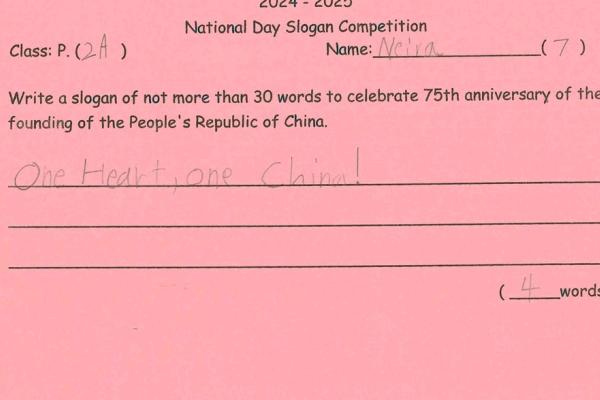 2024 - 2025
National Day Slogan Competition
Class: P. (2A) Name: Neira (7)
Write a slogan of not more than 30 words to celebrate 75th anniversary of the
founding of the People's Republic of China.
One Heart, one China!
( 4 words